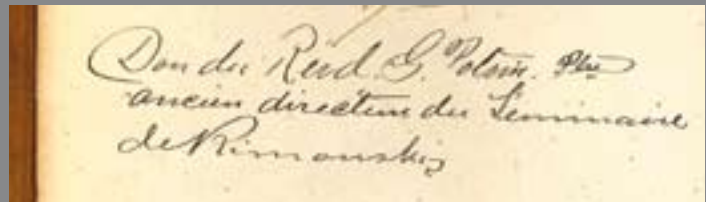 Don du Révd. G. Potvin. Ptre
ancien directeur du Séminaire
de Rimouski,